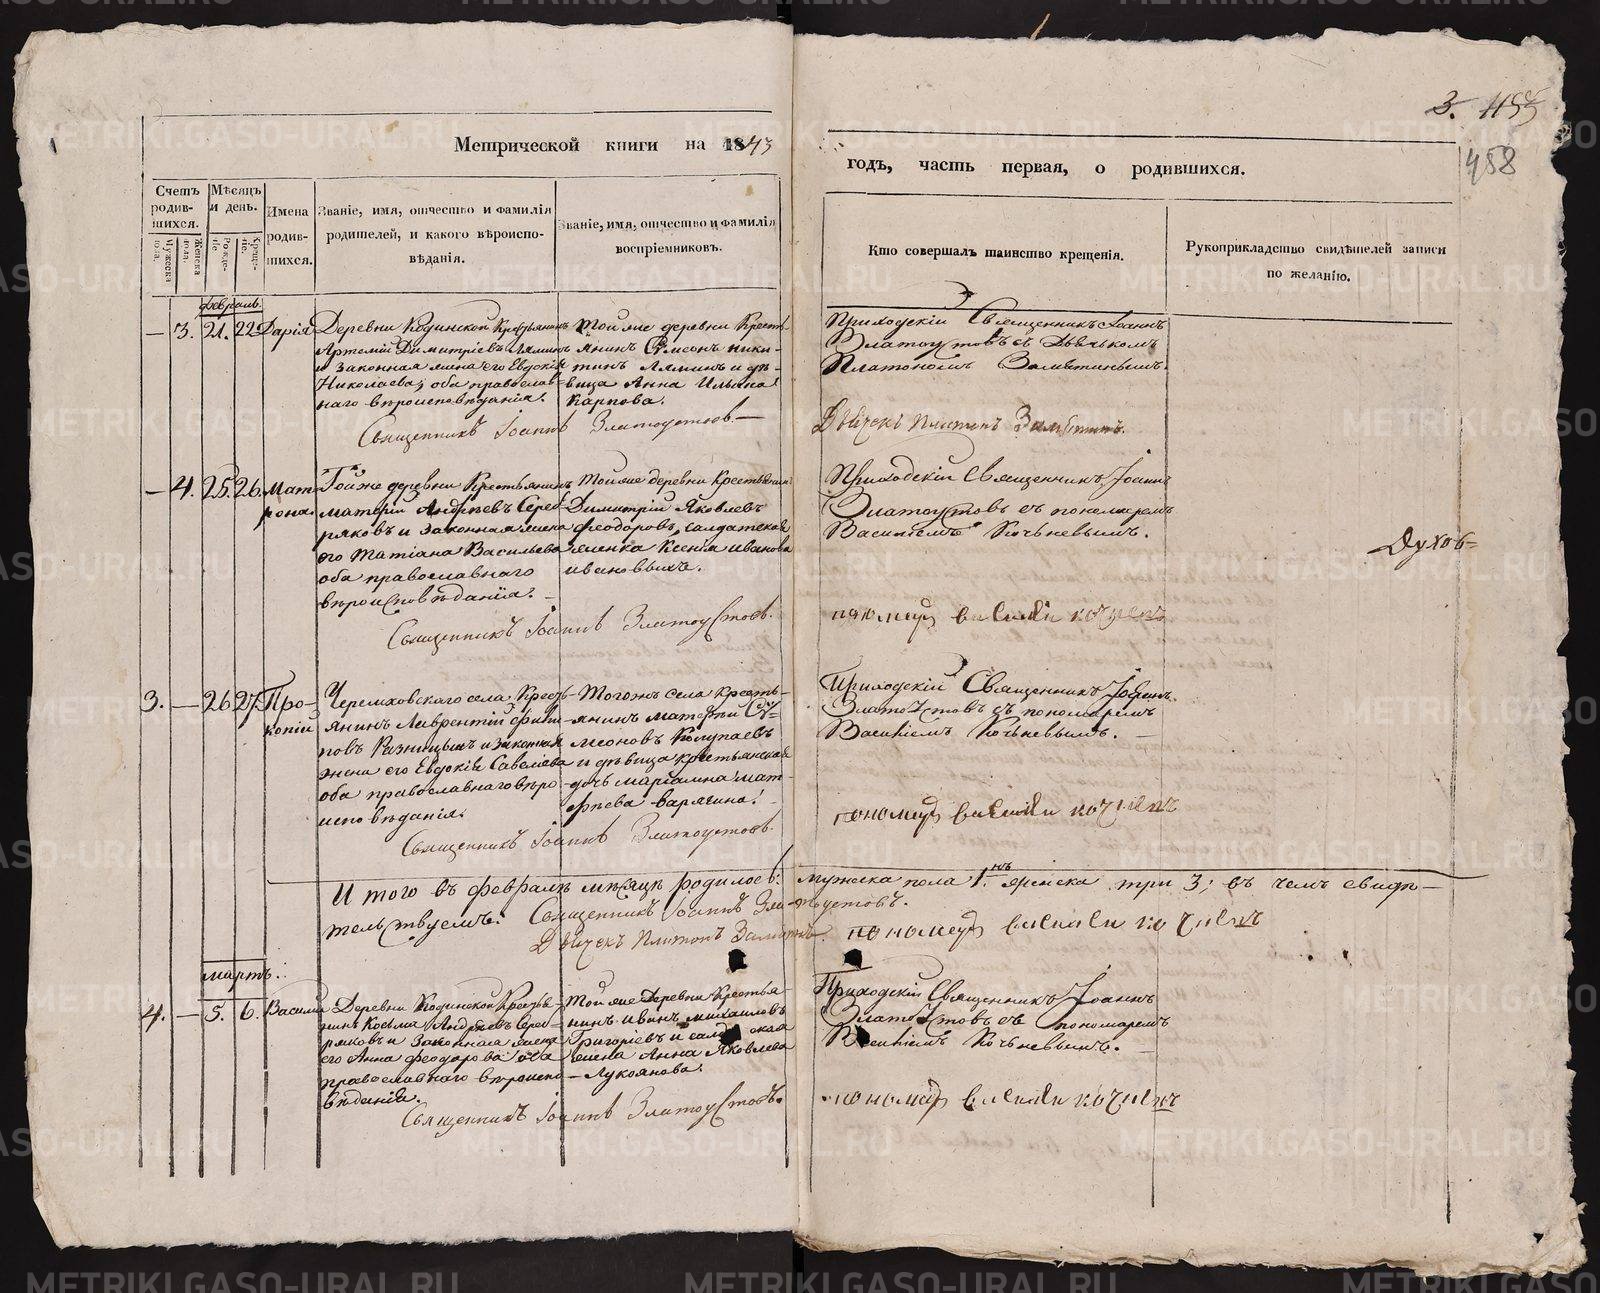 3. 455
458
Метрической книги на 1843
годъ, часть первая, о родившихся.
Счетъ родившихся.
Мужеска пола.
Женска пола.
Мѣсяцъ и день.
Рожденіе.
Крещеніе.
Имена родившихся.
Званіе, имя, отчество и фамилія
родителей, и какого вѣроиспо-
вѣданія.
Званіе, имя, отчество и фамилія
воспріемниковъ.
Кто совершалъ таинство крещенія.
Рукоприкладство свидѣтелей записи
по желанію.
февраль.
— 3. 21. 22 Дарія
Деревни Кодинской Крестьянинъ
Артемій Димитріевъ Ляминъ
и законная жена его Евдокія
Николаева; оба православ-
наго вѣроисповѣданія.
Той же деревни Кресть-
янинъ Симеонъ Ники-
тинъ Ляминъ и дѣ-
вица Анна Ильина
Карпова.
Приходскій Священникъ Іоаннъ
Златоустовъ съ Дьячькомъ
Платономъ Замятинымъ.
Священникъ Іоаннъ Златоустовъ.—
Дьячекъ Платонъ Замятинъ.
— 4. 25. 26. Мат-
рона.
Той же деревни Крестьянинъ
Андреевъ Сереб-
ряковъ и законная жена
его Татіана Васильева
оба православнаго
вѣроисповѣданія. —
Той же деревни Крестьянинъ
Димитрій Яковлевъ
Феодоровъ, салдатская
женка Ксенія Иванова
Приходскій Священникъ Іоаннъ
Златоустовъ съ пономаремъ
Василіемъ Кочьневымъ.
Духов=
Священникъ Іоаннъ Златоустовъ.
пономарь Василій Кочневъ
3. — 26 27. Про-
копій
Черемховского села Кресть-
янинъ Лаврентій Филип-
повъ и законная
жена его Евдокія Савелева
оба православнаго вѣро
исповѣданія.
Тогожъ села кресть-
янинъ Матфей Си-
меоновъ Колупаевъ
и дѣвица крестьянская
дочь Маріамна Мат-
фѣева Варягина.
Приходскій Священникъ Іоаннъ
Златоустовъ съ пономаремъ
Василіемъ Кочьневымъ. —
Священникъ Іоаннъ Златоустовъ.
пономарь Василій Кочневъ
И того въ февралѣ мѣсяцѣ родилось: мужеска пола 1.нъ женска три 3; въ чемъ свидѣ—
тельствуемъ: Священникъ Іоаннъ Златоустовъ.
Дьячекъ Платонъ Замятинъ. пономарь Василій Кочневъ
мартъ.
4. — 5. 6. Василій
Деревни Кодинской Крестья-
нинъ Косьма Андреевъ Сереб-
ряковъ и законная жена
его Анна Феодорова оба
православнаго вѣроиспо-
вѣданія.
Той же Деревни Крестья-
нинъ Иванъ Михайловъ
Григоріевъ и салдатская
жена Анна Яковлева
Лукоянова.
Приходскій Священникъ Іоаннъ
Златоустовъ съ пономаремъ
Василіемъ Кочьневымъ. —
Священникъ Іоаннъ Златоустовъ.
пономарь Василій Кочневъ
METRIKI.GASO-URAL.RU